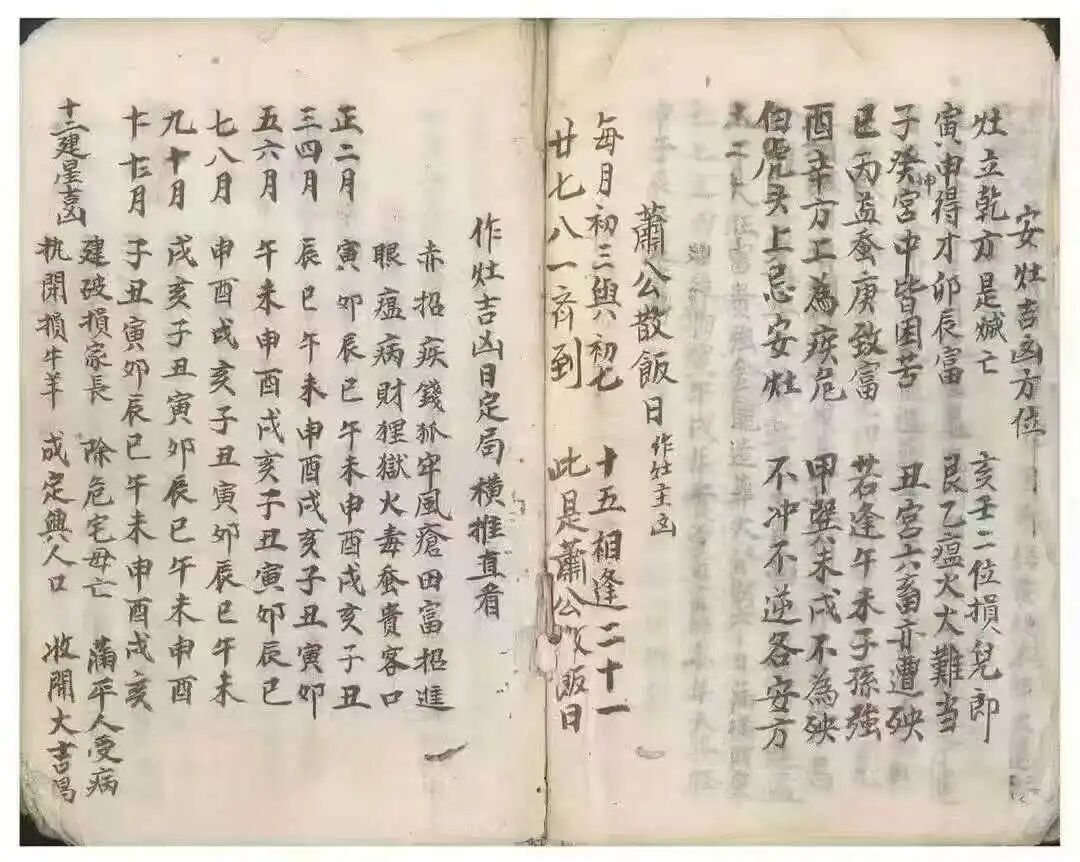 安灶吉凶方位
灶立乾方是滅亡 亥壬二位損兒郎
寅申得才卯辰富 艮乙瘟火大難当
子癸宮中皆困苦 丑宮六畜亦遭殃
巳丙益蚕庚致富 若逢午未子孫強
酉辛方工為疾危 甲巽未戌不為殃
伯虎头上忌安灶 不冲不逆各安方
蕭公散飯日 作灶主凶
每月初三與初七 十五相逢二十一
廿七八一齐到 此是蕭公散飯日
作灶吉凶日定局橫推直看
赤招疾錢狐牢風瘡田富招進
眼瘟病財狸獄火毒蚕貴客口
正二月 寅卯辰巳午未申酉戌亥子丑
三四月 辰巳午未申酉戌亥子丑寅卯
五六月 午未申酉戌亥子丑寅卯辰巳
七八月 申酉戌亥子丑寅卯辰巳午未
九十月 戌亥子丑寅卯辰巳午未申酉
十一十二月 子丑寅卯辰巳午未申酉戌亥
十二建星吉凶 建破損家長 除危宅母亡 滿平人受病
执閉損牛羊 成定興人口 收開大吉昌